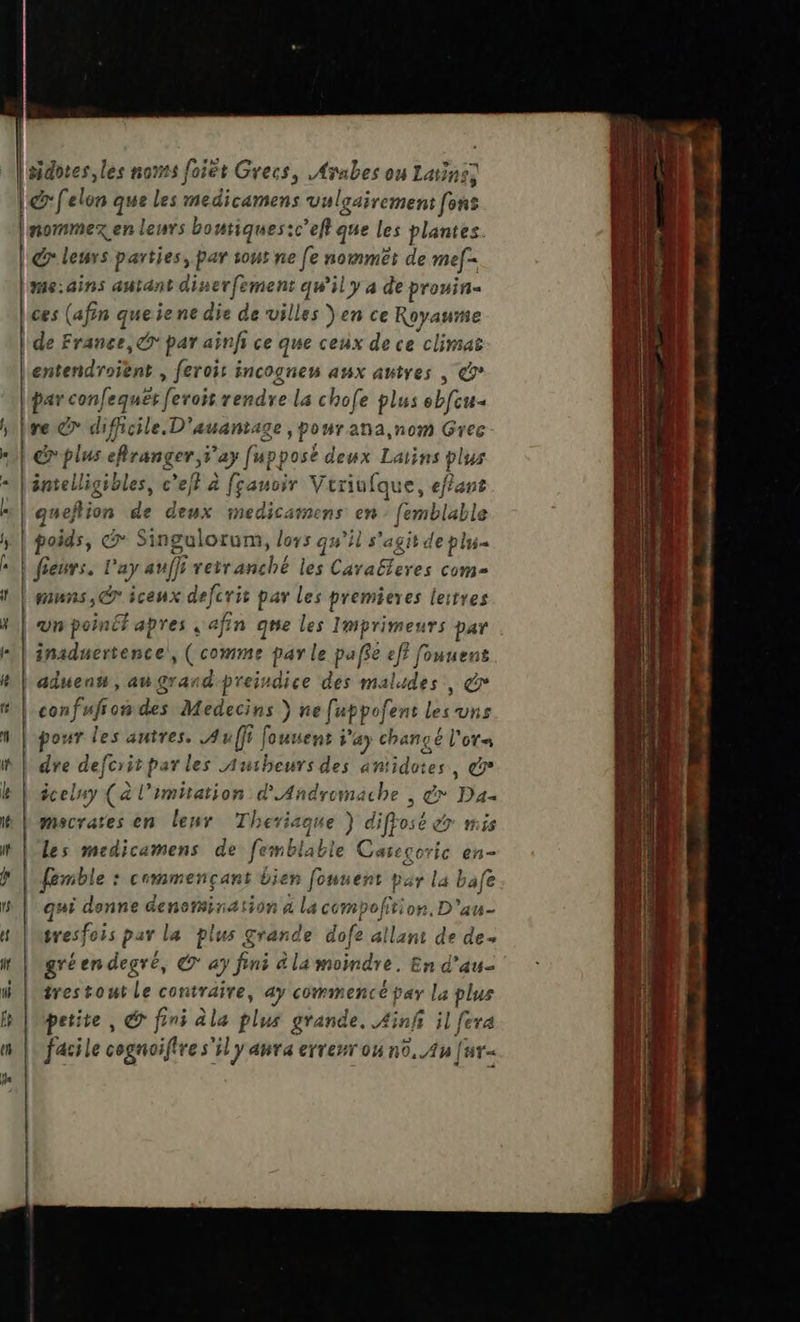 tidotes, les noms soiēt Grecs, Arabes ou Latins,
& selon que les medicamens vulgairement sont
nommez en leurs boutiques: c'est que les plantes
& leurs parties, par tout ne se nommēt de mes-
me: ains autant diuersement qu'il y a de prouin-
ces (afin que ie ne die de villes) en ce Royaume
de France, & par ainsi ce que ceux de ce climat
entendroiēnt, seroit incogneu aux autres, &
par consequēt seroit rendre la chose plus obscu-
re & difficile. D'auantage, pour ana, nom Grec
& plus estranger, i'ay supposé deux Latins plus
intelligibles, c'est à sçauoir Vtriusque, estant
question de deux medicamens en semblable
poids, & Singulorum, lors qu'il s'agit de plu-
sieurs. I'ay aussi retranché les Caracteres com-
muns, & iceux descrit par les premieres lettres
vn poinct apres, afin que les Imprimeurs par
inaduertence, (comme par le passé est souuent
aduenu, au grand preiudice des malades, &
confusion des Medecins) ne supposent les vns
pour les autres. Aussi souuent i'ay changé l'or-
dre descrit par les Autheurs des antidotes, &
iceluy (à l'imitation d'Andromache, & Da-
mocrates en leur Theriaque) disposé & mis
les medicamens de semblable Categoric en-
semble: commençant bien souuent par la base
qui donne denomination à la composition. D'au-
tresfois par la plus grande dose allant de de-
gré en degré, & ay fini à la moindre. En d'au-
tres tout le contraire, ay commencé par la plus
petite, & fini à la plus grande. Ainsi il sera
facile cognoistre s'il y aura erreur ou nō. Au sur-